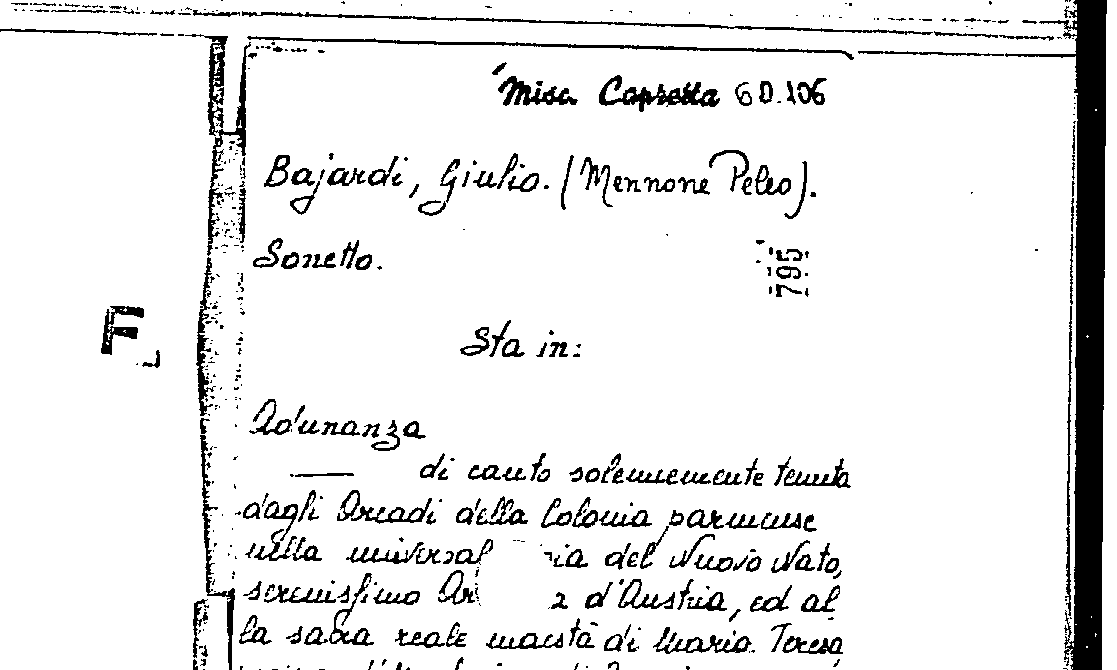 Misc. Capretta 6D.106
Bajardi, Giulio. (Mennone Peleo).
Sonetto.
795
F
Sta in:
Adunanza
di canto solennemente tenuta
dagli Arcadi della Colonia parmense
nella universal ia del Nuovo Nato,
serenissimo Ar d'Austria, ed al
la sacra reale maestà di Maria Teresa